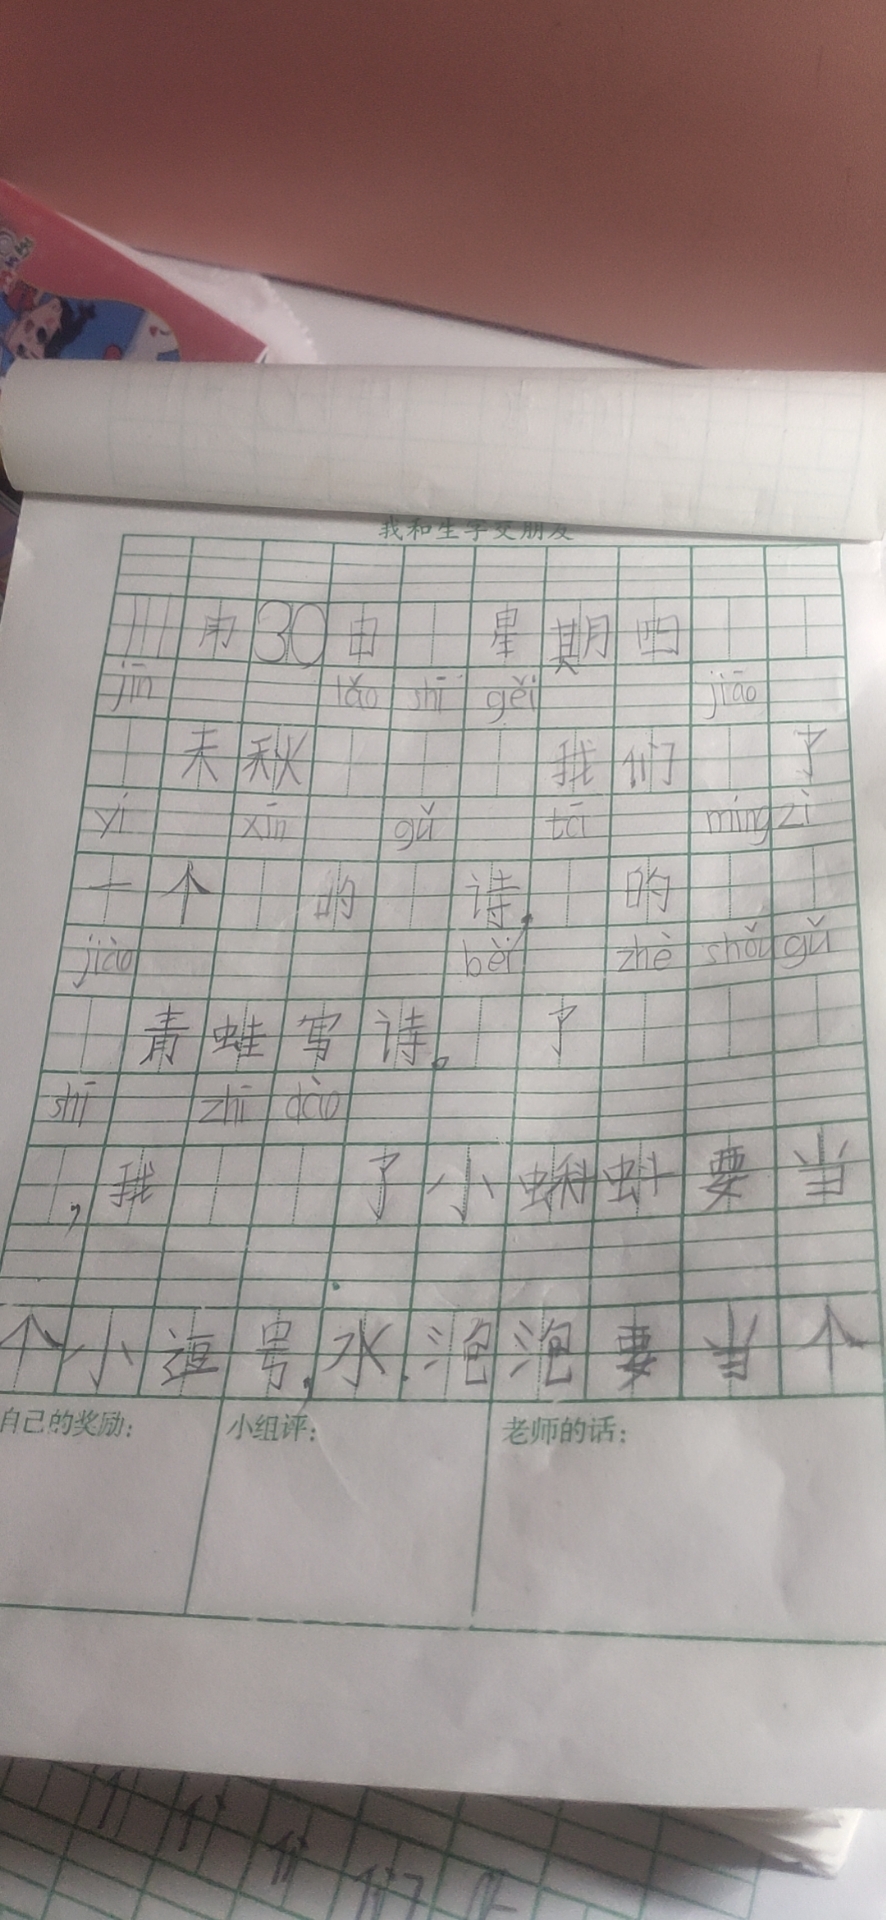 我和生字交朋友
月30日 星期四
jīn lǎo shī gěi jiāo
天秋 我们 了
yì xīn gǔ tā míng zì
一个 的 诗, 的
jiào bèi zhè shǒu gǔ
青蛙写诗。 了
shī zhī dào
,我 了小蝌蚪要当
个小逗号,水泡泡要当个
自己的奖励: 小组评: 老师的话: